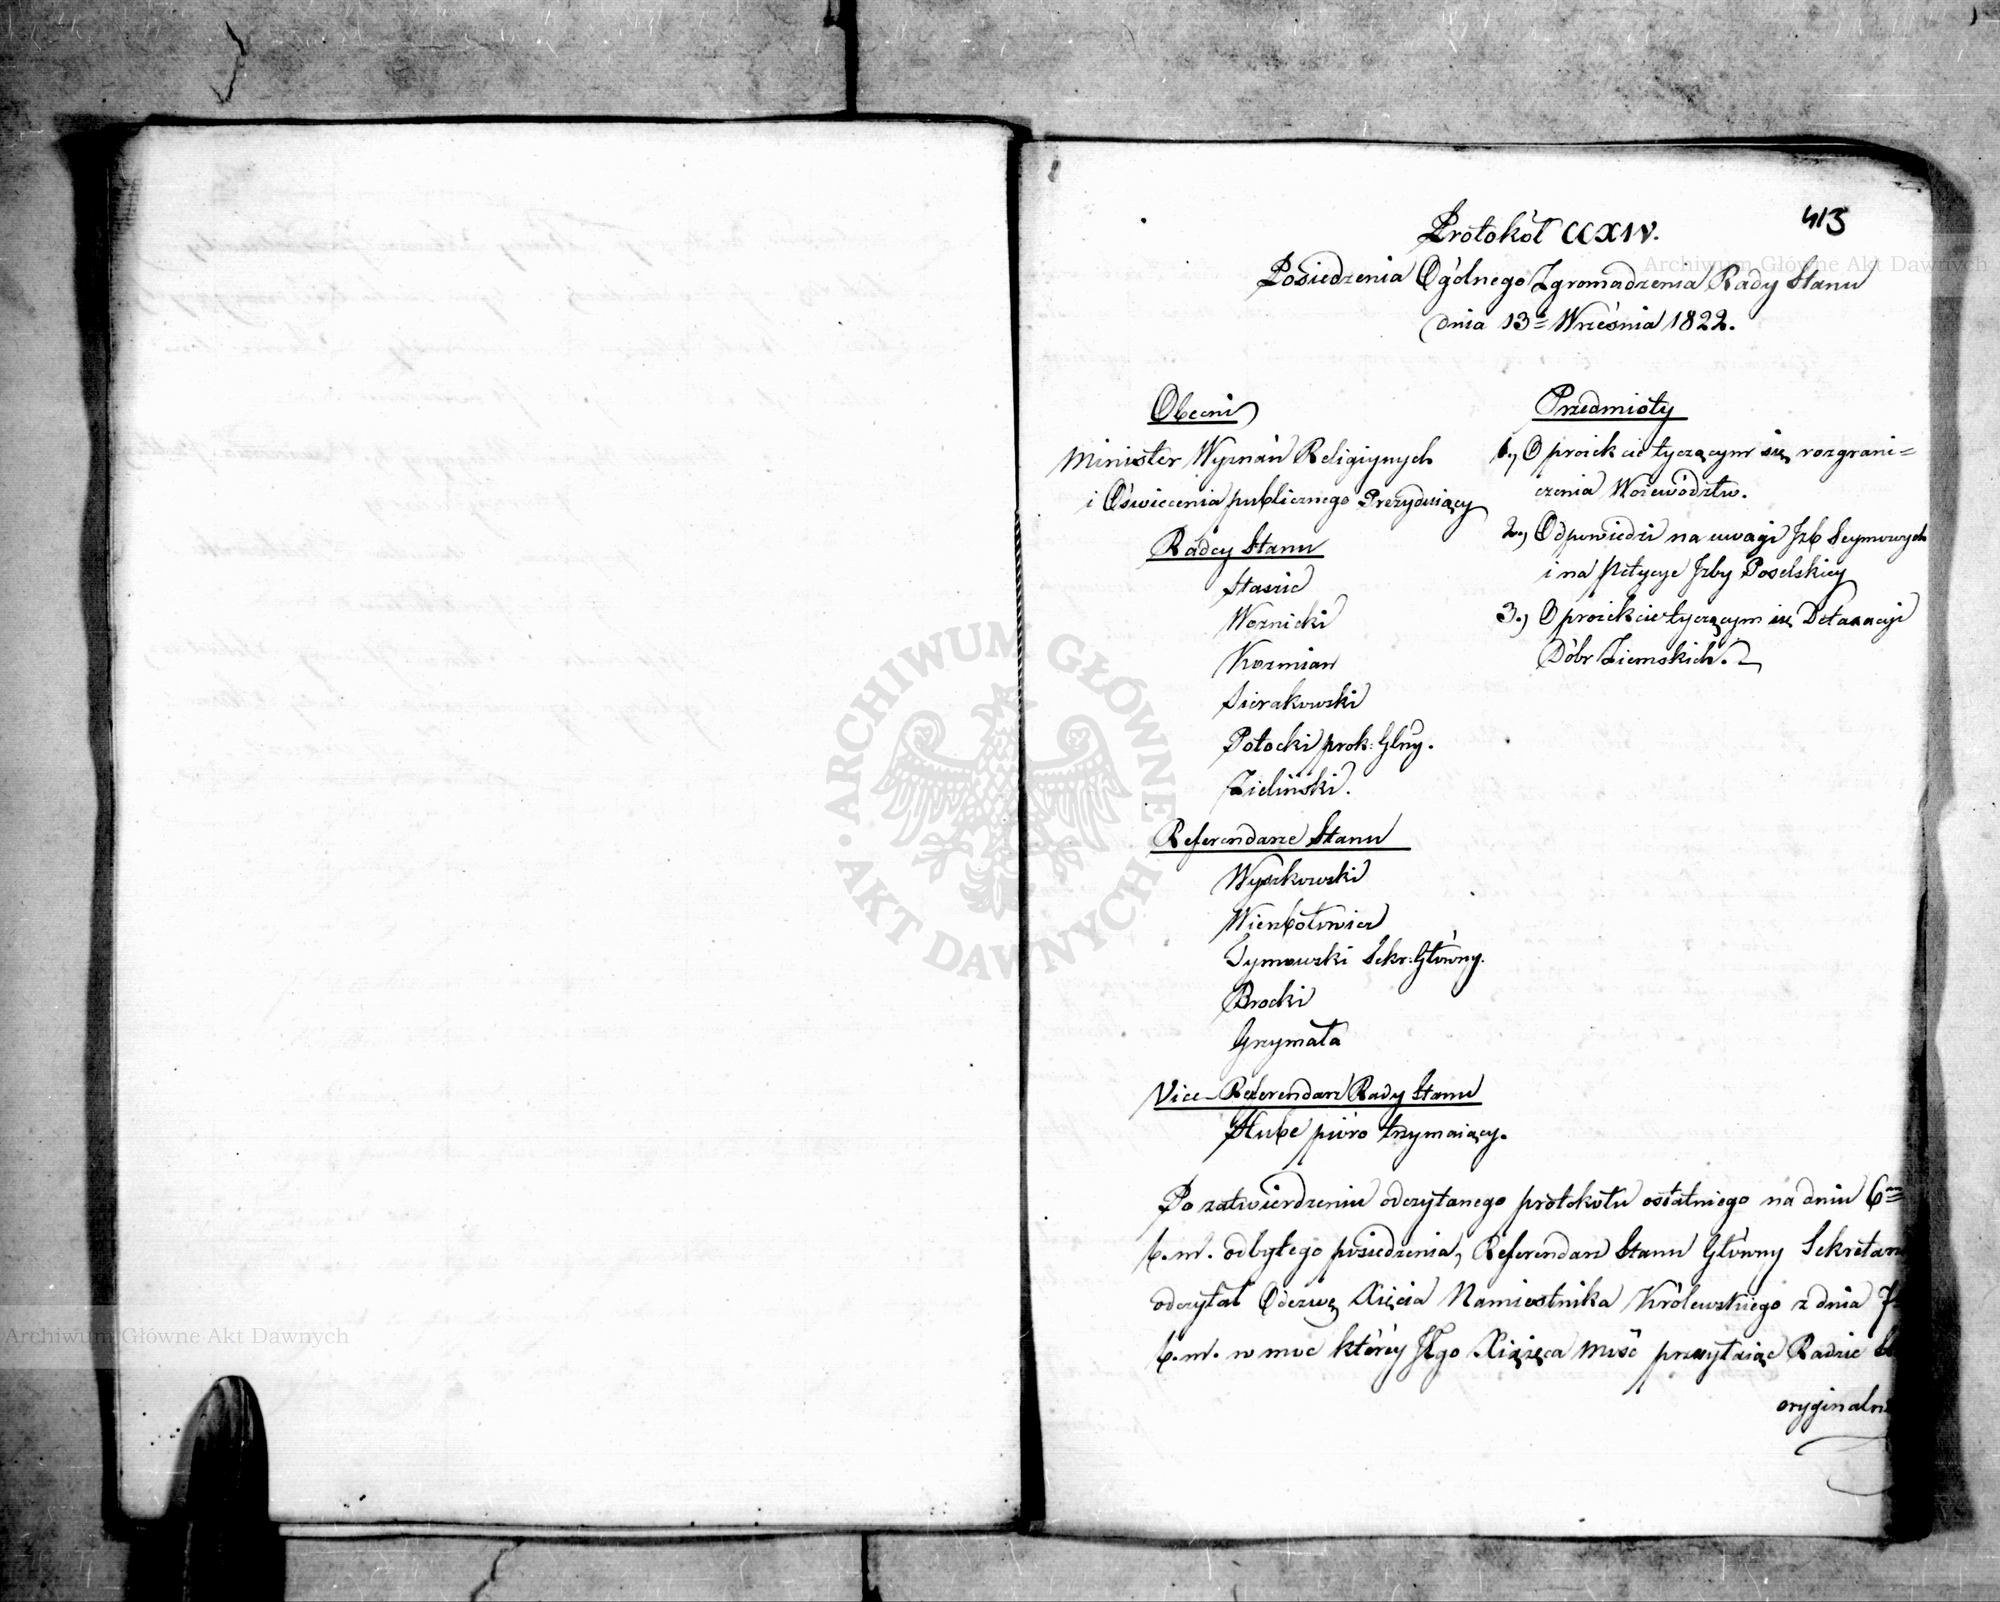 413
Protokół CCXIV.
Posiedzenia Ogólnego Zgromadzenia Rady Stanu
dnia 13º Września 1822.
Obecni
Minister Wyznań Religiynych
i Oświecenia publicznego Prezyduiący
Radcy Stanu
Staszic
Woznicki
Kozmian
Sierakowski
Potocki prok: Głny.
Zieliński.
Referendarze Stanu
Wyszkowski
Wierzbołowicz
Tymowski Sekr: Główny.
Brocki
Grzymała
Vice-Referendarz Rady Stanu
Hube pióro trzymaiący.
Przedmioty
1., O proiekcie tyczącym się rozgrani=
czenia Woiewództw.
2., Odpowiedzi na uwagi Izb Seymowych
i na Petycye Izby Poselskiey
3., O proiekcie tyczącym się Detaxacyi
Dóbr Ziemskich.
Po zatwierdzeniu odczytanego protokołu ostatniego na dniu 6m
b.m. odbytego posiedzenia, Referendarz Stanu Główny Sekretarz
odczytał Odezwę Xięcia Namiestnika Królewskiego z dnia
b.m. w moc którey JEgo Xiążęca Mość przesyłaiąc Radzie
oryginaln
Archiwum Główne Akt Dawnych
Archiwum Główne Akt Dawnych
ARCHIWUM GŁÓWNE AKT DAWNYCH